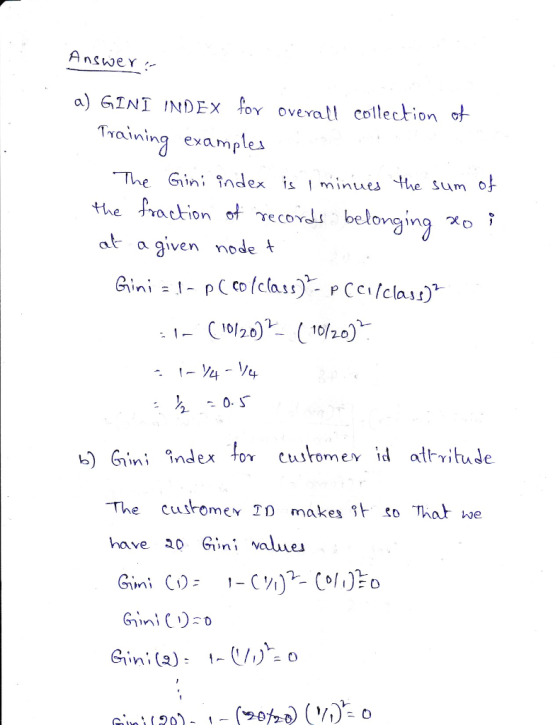 Answer :-
a) GINI INDEX for overall collection of
Training examples
The Gini index is 1 minues the sum of
the fraction of records belonging xo i
at a given node t
Gini = 1 - P(C0/class)² - P(C1/class)²
= 1 - (10/20)² - (10/20)²
= 1 - 1/4 - 1/4
= 1/2 = 0.5
b) Gini index for customer id attritude
The customer ID makes it so That we
have 20 Gini values
Gimi (1) = 1 - (1/1)² - (0/1)² = 0
Gini (1) = 0
Gini (2) = 1 - (1/1)² = 0
⋮
Gini (20) = 1 - (20/20) (1/1)² = 0